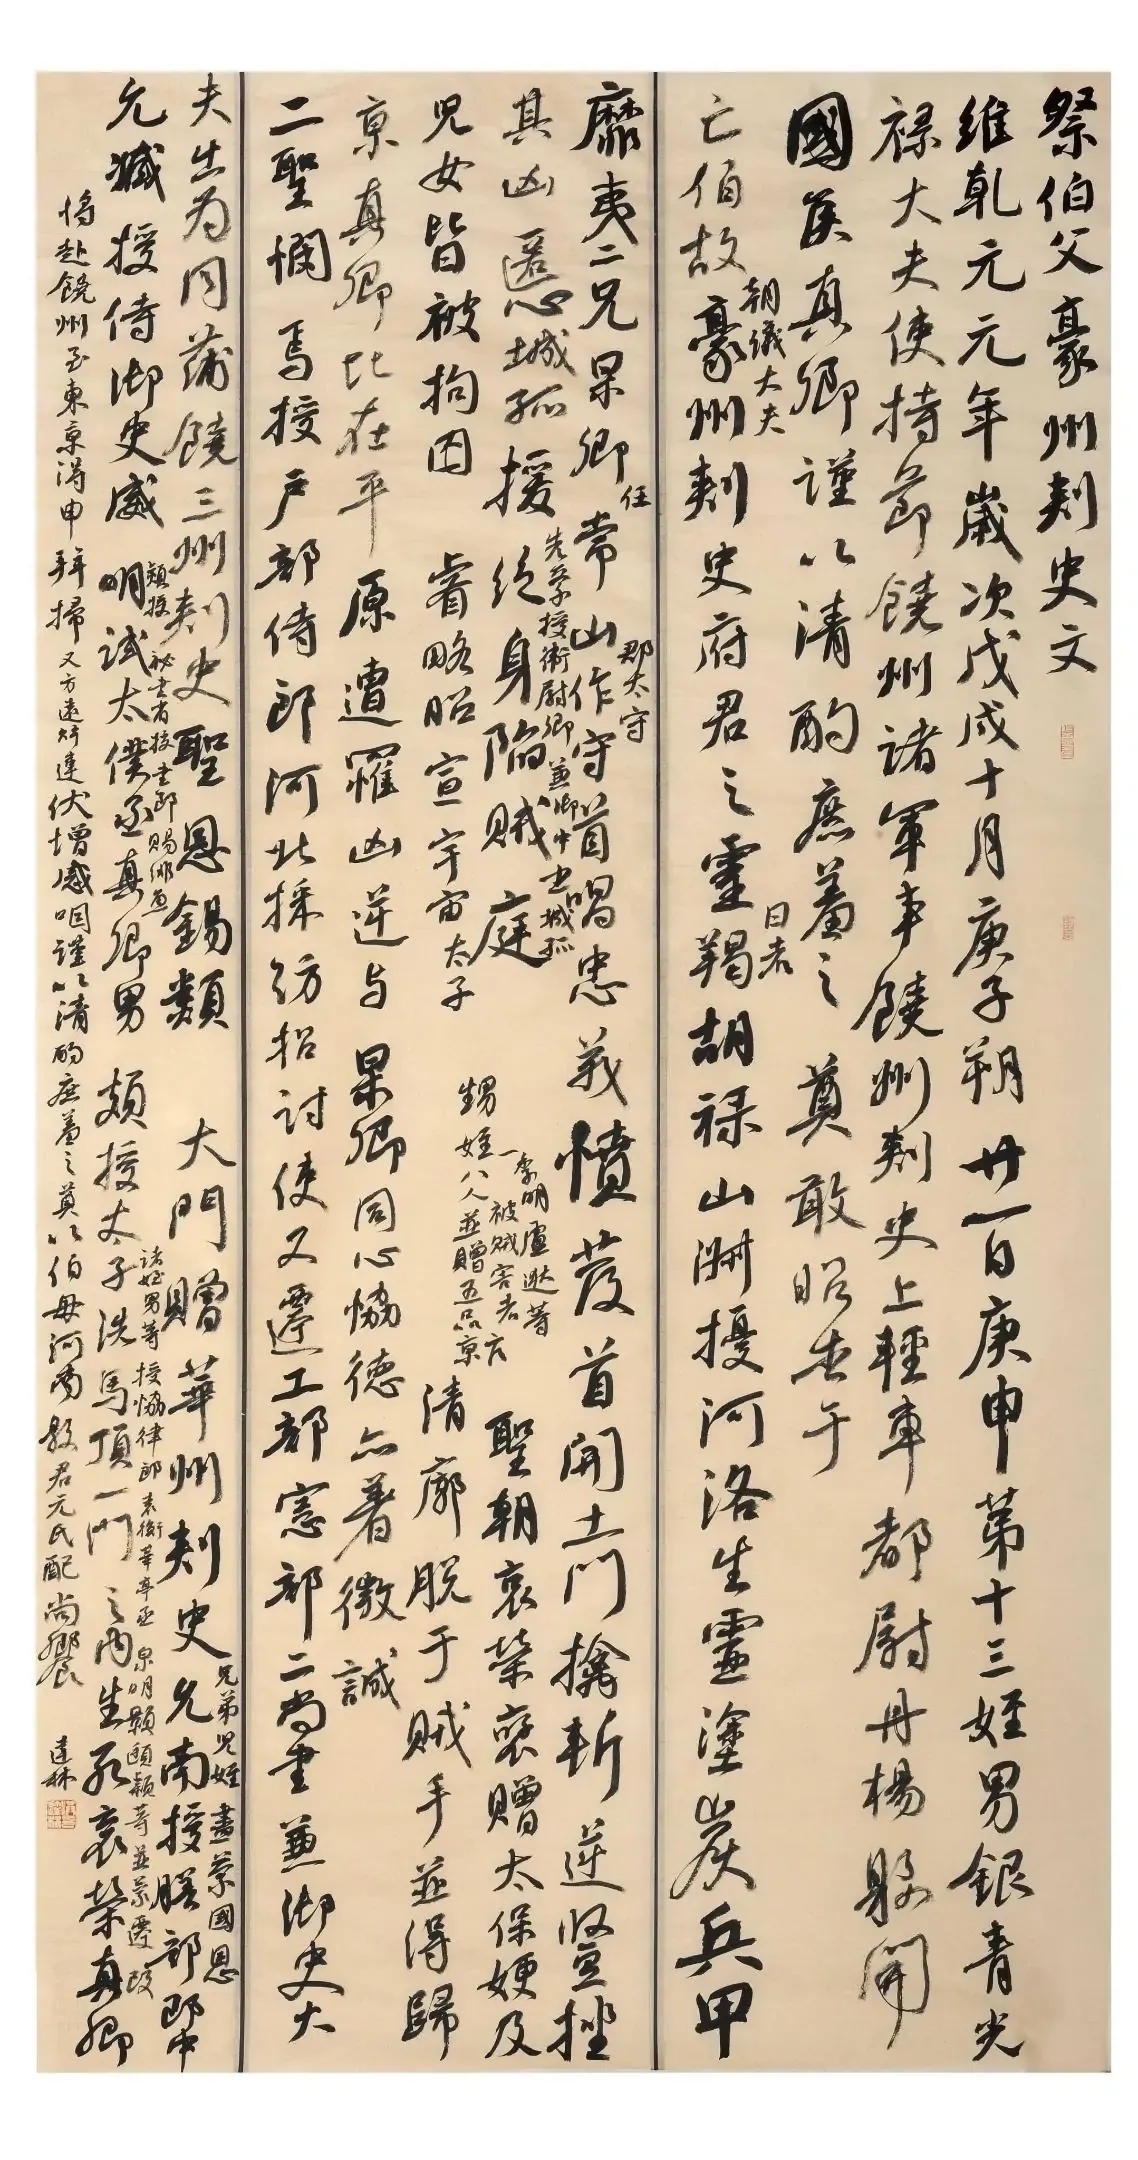 祭伯父豪州刺史文
維乹元元年歲次戊戌十月庚子朔廿一日庚申第十三姪男銀青光
禄大夫使持節饒州諸軍事饒州刺史上輕車都尉丹楊縣開
國侯真卿謹以清酌庶羞之奠敢昭告于
亡伯故
朝議大夫
豪州刺史府君之靈
日者
羯胡禄山㴍擾河洛生靈塗炭兵甲
靡夷二兄杲卿
任
常山作守首唱忠義憤發首開土門擒斬逆竪挫
郡太守
其凶慝心城孤援絕身陷賊庭
先蒙授衛尉卿兼御中丞城孤
聖朝哀榮褒贈太保姪及
兒女皆被拘囚
睿略昭宣宇宙
太子
甥姪八人並贈五品京
一李明盧逖等
被賊害者六
清廓脱于賊手並得歸
京真卿比在平原遭罹凶逆与杲卿同心協德亦著微誠
二聖憫焉授户部侍郎河北採訪招討使又遷工部憲部二尚書兼御史大
夫出为同蒲饒三州刺史聖恩錫類大門贈華州刺史
兄弟兒姪盡蒙國恩
允南授膳部郎中
允臧授侍御史威明試太僕丞真卿男頗授太子洗馬頂一門之内生死哀榮真卿
頵授
秘書省校書郎賜緋魚
諸姪男等授協律郎
泉明顯頤頵等並蒙遷改
將赴饒州至東京得申拜掃又方遠辭違伏增感咽謹以清酌庶羞之奠以伯母河南縣君元氏配尚饗
達林